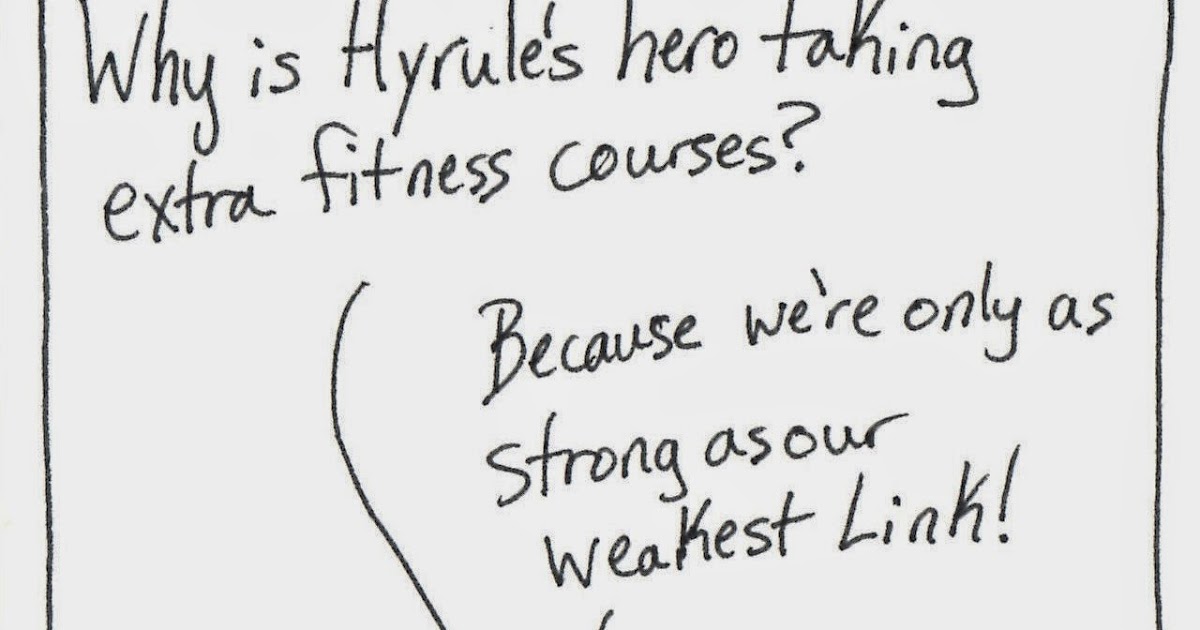 Why is Hyrule's hero taking
extra fitness courses?
Because we're only as
strong as our
weakest Link!